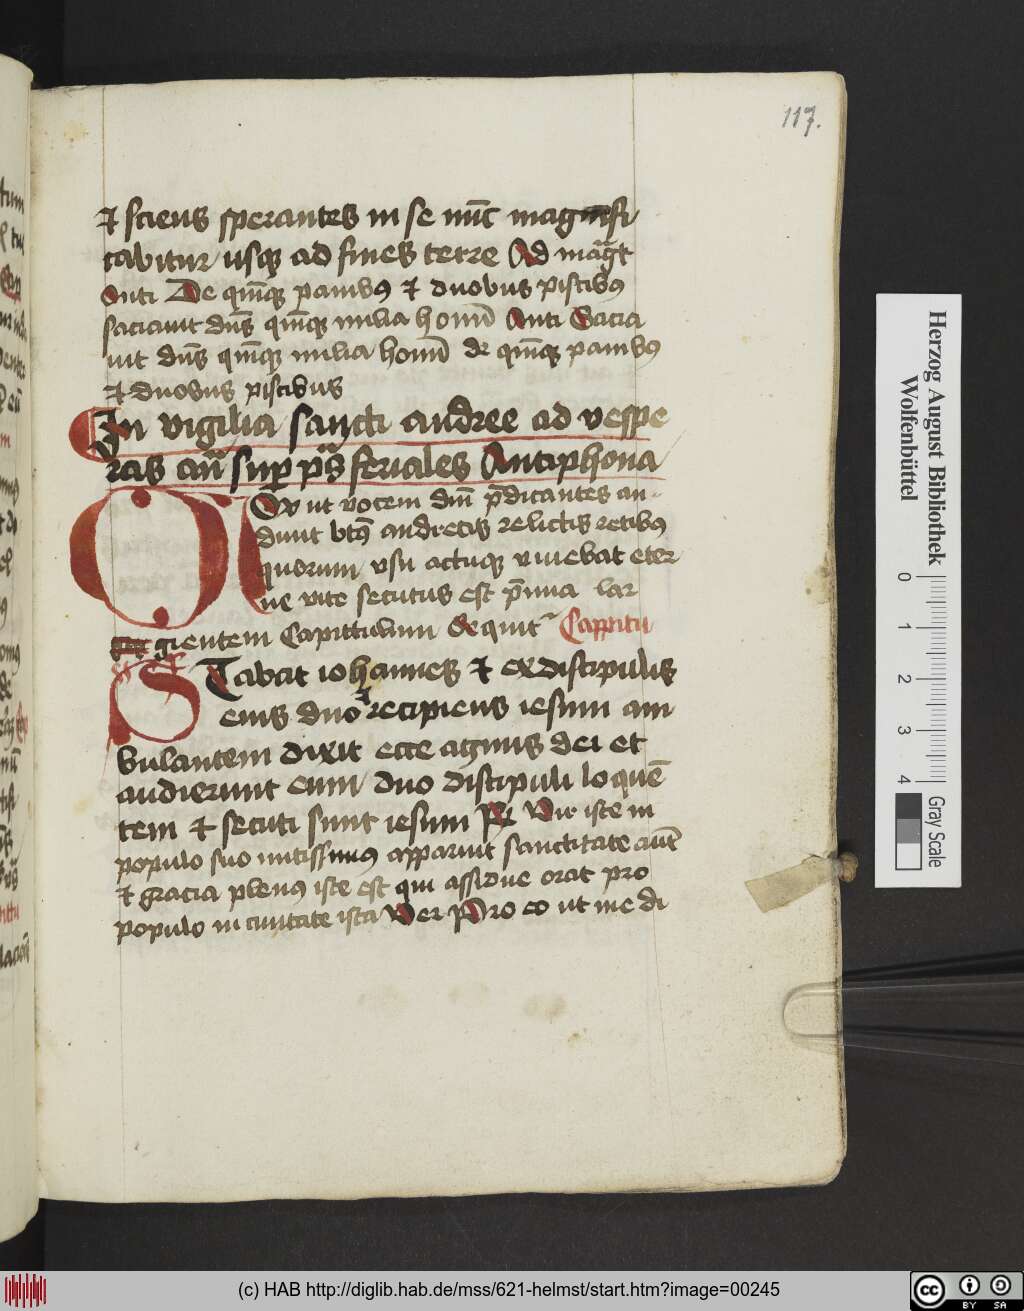 117.
et sciens sperantes in se nūc magnifi
cabitur usq̄ ad fines terre Ad mag̅t
Anti De qīnq̄ panibꝰ et duobus piscibꝰ
saciauit dn̄s qīnq̄ milia homī Anti Sacia
uit dn̄s qīnq̄ milia homī de qīnq̄ panibꝰ
et duobus piscibus
In vigilia sancti andree ad vespe
ras an̄ sup̄ p̄s feriales Antiphona
Qui ut vocem dn̄i p̄dicantes au-
diuit bt̄ꝰ andreas relictis retibꝰ
quorum vsu actuque viuebat eter
ne vite secutus est p̄mia lar
gientem Capittulum de quīt Cappitu
STabat iohannes et ex discipulis
eius duo recipiens iesum am
bulantem dixit ecce agnus dei et
audierunt eum duo discipuli loquē
tem et secuti sunt iesum R Vir iste in
populo suo mitissimꝰ apparuit sanctitate aūt
et gracia plenꝰ iste est qui assidue orat pro
populo in ciuitate ista Ver Pro eo ut me di
Herzog August Bibliothek
Wolfenbüttel
0 1 2 3 4
Gray Scale
(c) HAB http://diglib.hab.de/mss/621-helmst/start.htm?image=00245
cc BY SA